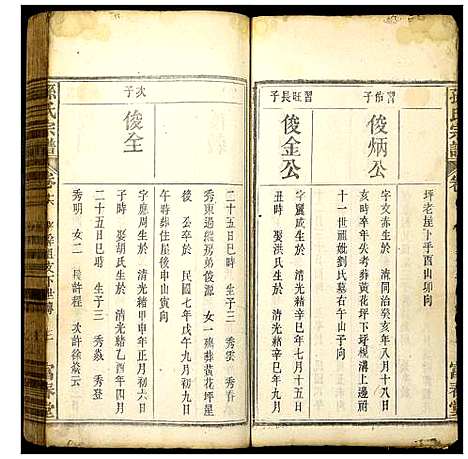 孫氏宗譜
富春堂
坪老屋丁乎酉山卯向
習伯子
俊炳公
字文赤生於 清同治癸亥年八月十八日
亥時卒年失考葬黃花坪下埂橫溝上
廿一世祖妣劉氏墓右午山子向
習旺長子
俊金公
字質成生於 清光緒辛巳年七月十五日
丑時 娶洪氏生於 清光緒辛巳年九月
二十五日巳時 生子二 秀雲 秀春
秀東過繼房弟俊源 女一 穗葬黃花坪星
後 公卒於 民國七年戊午九月初九日
午時葬住屋後申山寅向
次子
俊全
字應周生於 清光緒甲申年正月初六日
時 娶胡氏生於 清光緒乙酉年四月
二十五日巳時 生子三 秀焱 秀登
秀明 女二 長許程 次許徐焱云
孫氏宗譜
富春堂